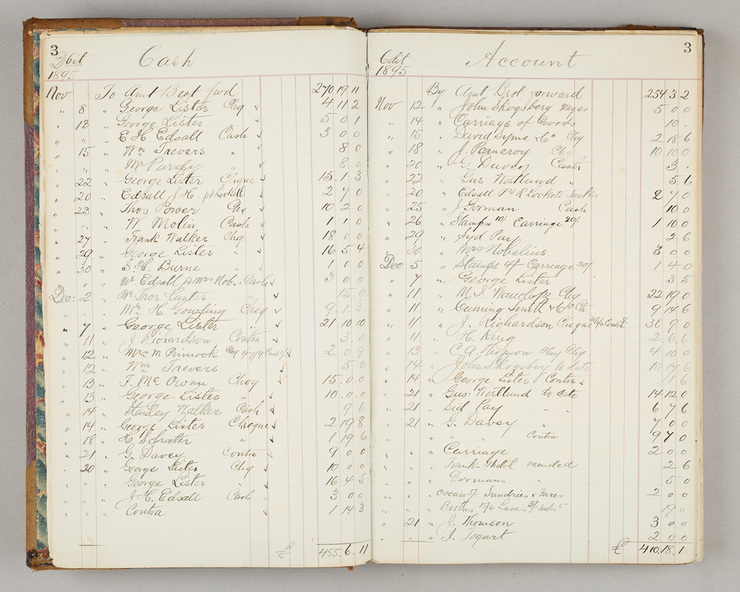 3
Dbit Cash
1895
Nov To Amt Brot fwd 270 19 11
" 8 " George Lister Chq " 4 11 2
" 13 " George Lister " 5 0 1
" " E H Edsall Cash 3 0 0
" 15 " Wm Trevers " 8 0
" " Mr Purdy " 8 0
" 22 " George Lister 15 1 3
" 20 " Edsall J H 2 7 0
" 23 " Thos Power Chq 10 2 0
" " W Molin Cash 1 1 0
" 27 " Frank Walker Chq 18 0 0
" 29 " George Lister " 16 5 4
" 30 " S. H. Burne " 1 1 0
" " Mr Edsall p Mrs Nob. Cash 3 0 0
Dec. 2 " 15 0
" " Mr H Gosling Cheq 9 1 3
" 7 " George Lister 21 10 10
" 11 " J Richardson Contra 3 0
" 12 " Mrs M Pinnock 2 0 9
" 12 " Wm Trevers " 5 0
" 13 " F. Mc Owan Cheq 15 0 0
" 13 " George Lister " 10 0 0
" 14 " Walker Cash 9 6
" 14 " George Lister Cheque 2 19 8
" 18 " " 1 19 6
" 21 " G. Davey Contra 9 0 0
" 20 " George Lister Chq 10 0 0
" George Lister " 16 4 5
" J H Edsall Cash 3 0 0
" Contra 1 14 3
£ 455. 6. 11
3
Cdit Account
1895
By Amt Brot forward 254 3 2
Nov 12 " John Skogsberg Wages 5 0 0
" 14 " Carriage of Goods 10
" 15 " David Syme & Co Chq 2 18 6
" 18 " J. Pomeroy Chq 10 10 0
" 20 " G. Davey Cash 3
" 22 " Gus Westlund " 5 6
" 20 " Edsall 2 7 0
" 25 " J. Gorman Cash 10 0
" 26 " Stamps 10/ Carriage 20/ 1 10 0
" 29 " Syd Pay 2 6
" 30 " Mrs Nobelius 3 0 0
Dec 5 " Stamps 4/ Carriage 20/ 1 4 0
" 7 " George Lister 3 5
" 11 " Chq 22 19 0
" 11 " Cuming Smith & Co Ch 9 14 6
" 11 " J. Richardson Cheque 30 9 0
" 11 " H. King 2 6 6
" 13 " Chq 4 10 0
" 14 " John Skogsberg to date 10 17 6
" 14 " George Lister Contra 1 6
" 21 " Gus Westlund to date 14 12 0
" 21 " Sid Pay " " 6 7 6
" 21 " G. Davey 7 0 0
" " Contra 9 7 0
" Carriage 2 0 0
" mended 2 6
" Gormans 5 0
Sundries & Fares 2 0 0
" 21 " J. Thomson 3 0 0
" " J. Jogart 2 0 0
£ 410. 18. 1